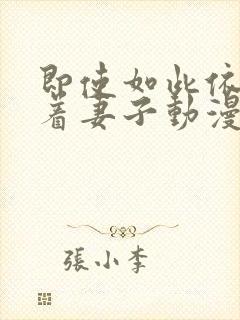 即使如此依
着妻子動漫
張小李